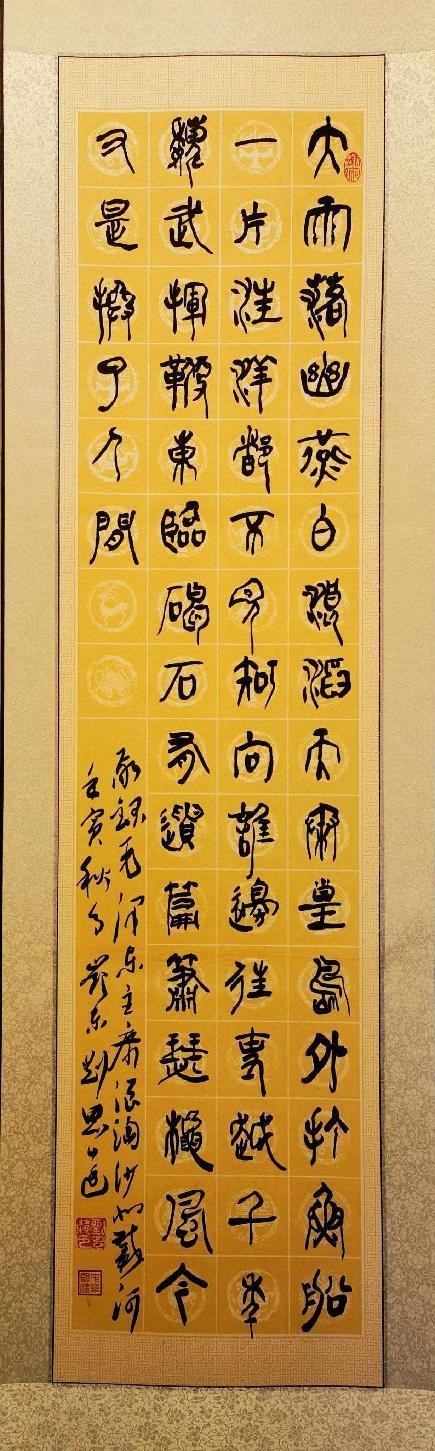 大雨落幽燕白浪滔天秦皇島外打魚船
一片汪洋都不見知向誰邊往事越千年
魏武揮鞭東臨碣石有遺篇蕭瑟秋風今
又是換了人間
敬録毛泽东主席浪淘沙北戴河
壬寅秋月岭东刘思